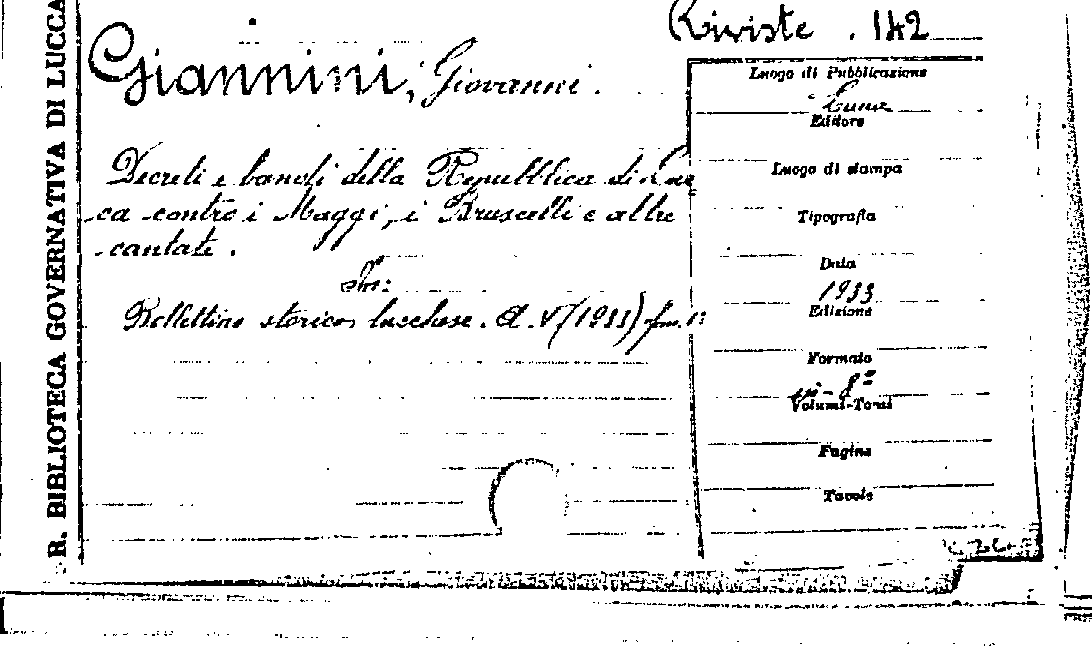 Riviste . 142
R. BIBLIOTECA GOVERNATIVA DI LUCCA
Giannini, Giovanni.
Decreti e bandi della Repubblica di Luc
ca contro i Maggi, i Bruscelli e altre
cantate.
In:
Bollettino storico lucchese. A. V (1933) fasc.
Luogo di Pubblicazione
Lucca
Editore
Luogo di stampa
Tipografia
Data
1933
Edizione
Formato
in-8º
Volumi-Tomi
Pagine
Tavole